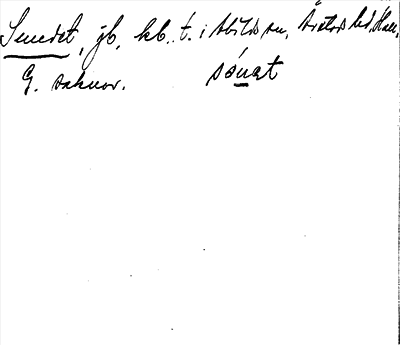 Smedet, jb, kb. t. i Abilds sn, Årstads hd, Hall.
G. saknor. sónat